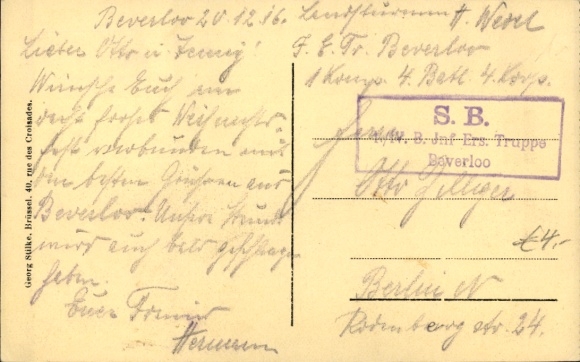 Beverloo 20.12.16.
Lieber Otto u. Jenny!
Wünsche Euch ein
recht frohes Weihnachts-
fest verbunden mit
den besten Grüssen aus
Beverloo. Unsre Stunde
wird auch bald geschlagen
haben.
Euer Freund
Hermann
Landsturmm. H. Wesel
F. E. Tr. Beverloo
1 Komp. 4. Batl. 4. Korp.
S. B.
B. Inf Ers. Truppe
Beverloo
Herrn
Otto
Berlin N
str. 24.
£4.-
Georg Stilke, Brüssel, 40, rue des Croisades.